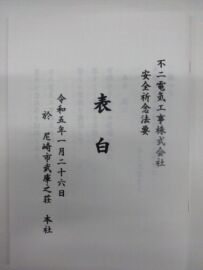 不二電気工事株式会社
安全祈念法要
表白
令和五年一月二十六日
於 尼崎市武庫之荘 本社